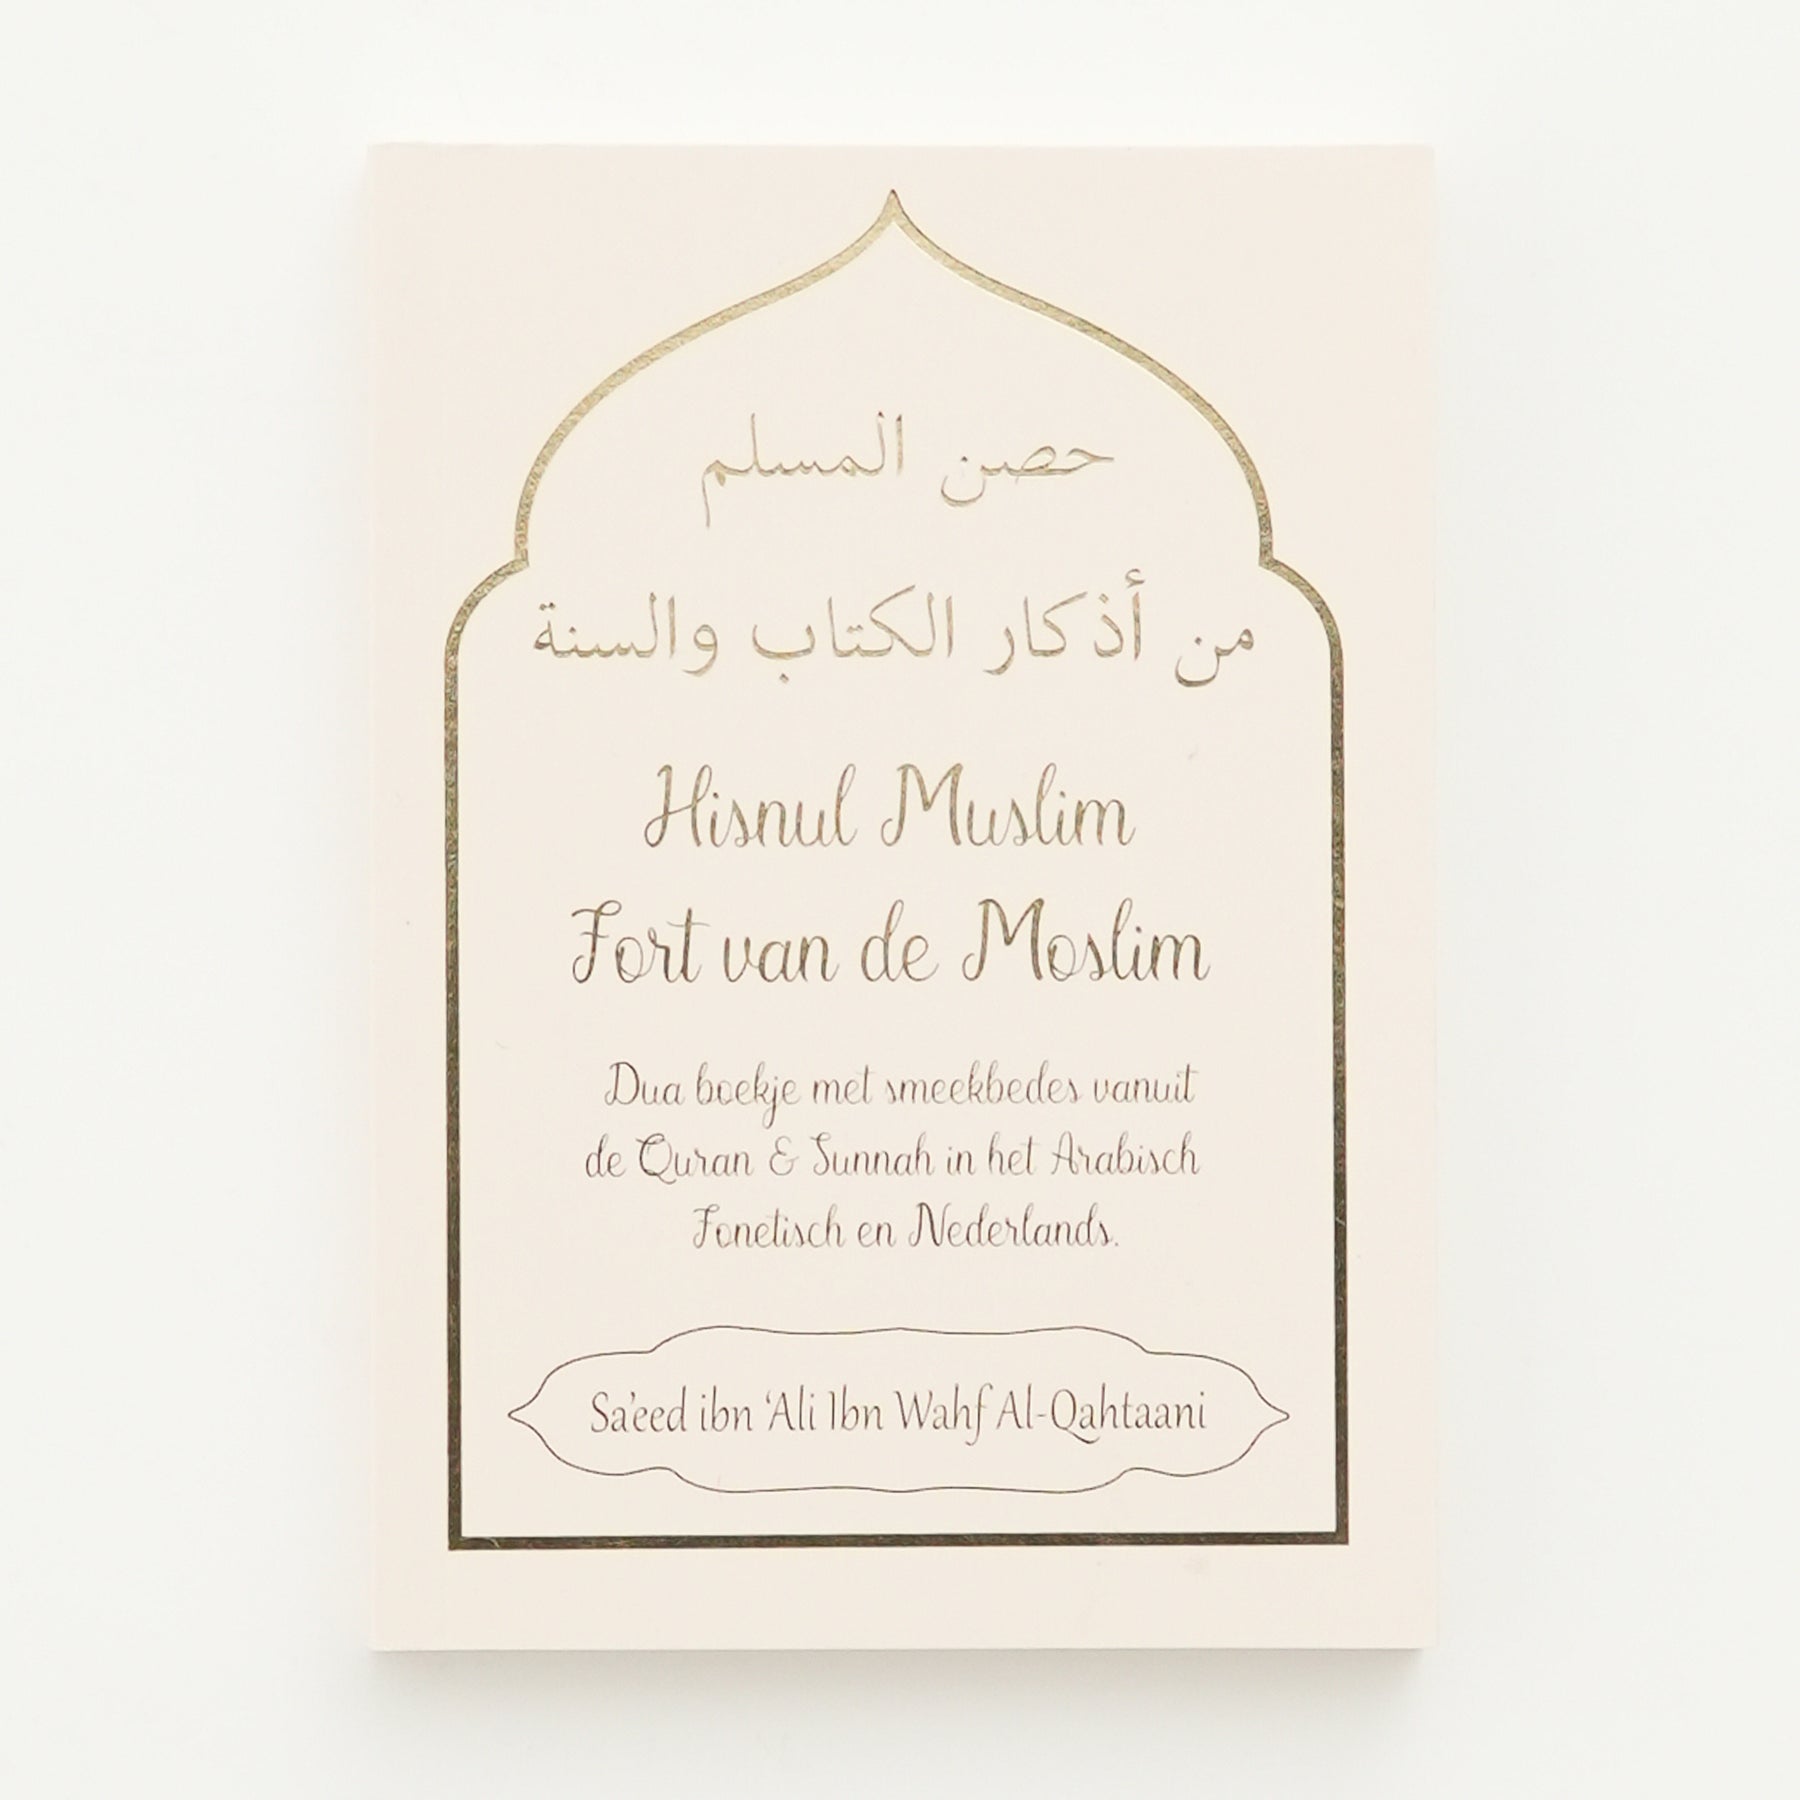 حصن المسلم
من أذكار الكتاب والسنة
Hisnul Muslim
Fort van de Moslim
Dua boekje met smeekbedes vanuit
de Quran & Sunnah in het Arabisch
Fonetisch en Nederlands.
Sa'eed ibn 'Ali Ibn Wahf Al-Qahtaani